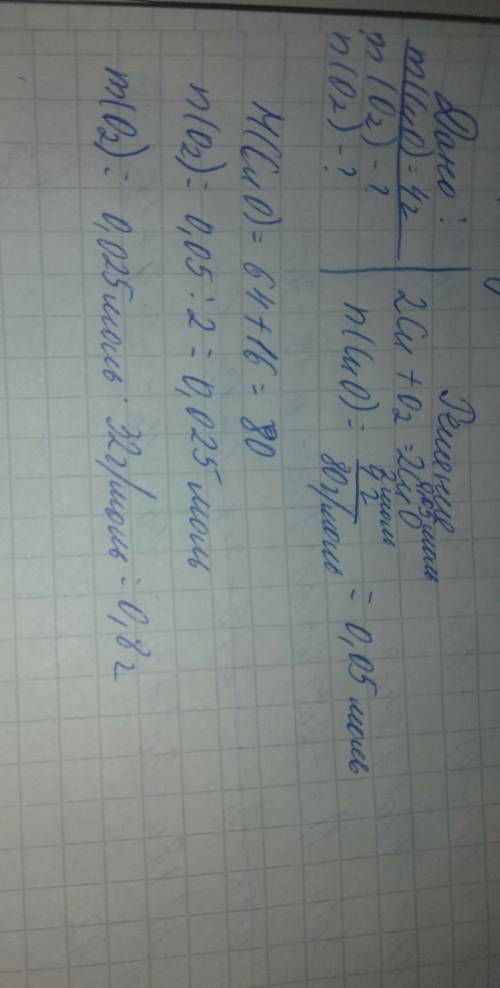 Дано:
m(CuO) = 4г
m(O₂) - ?
n(O₂) - ?
Решение
0,05 моль
2Cu + O₂ = 2CuO
2 моль
n(CuO) = 4г / 80г/моль = 0,05 моль
M(CuO) = 64 + 16 = 80
n(O₂) = 0,05 : 2 = 0,025 моль
m(O₂) = 0,025 моль · 32г/моль = 0,8г